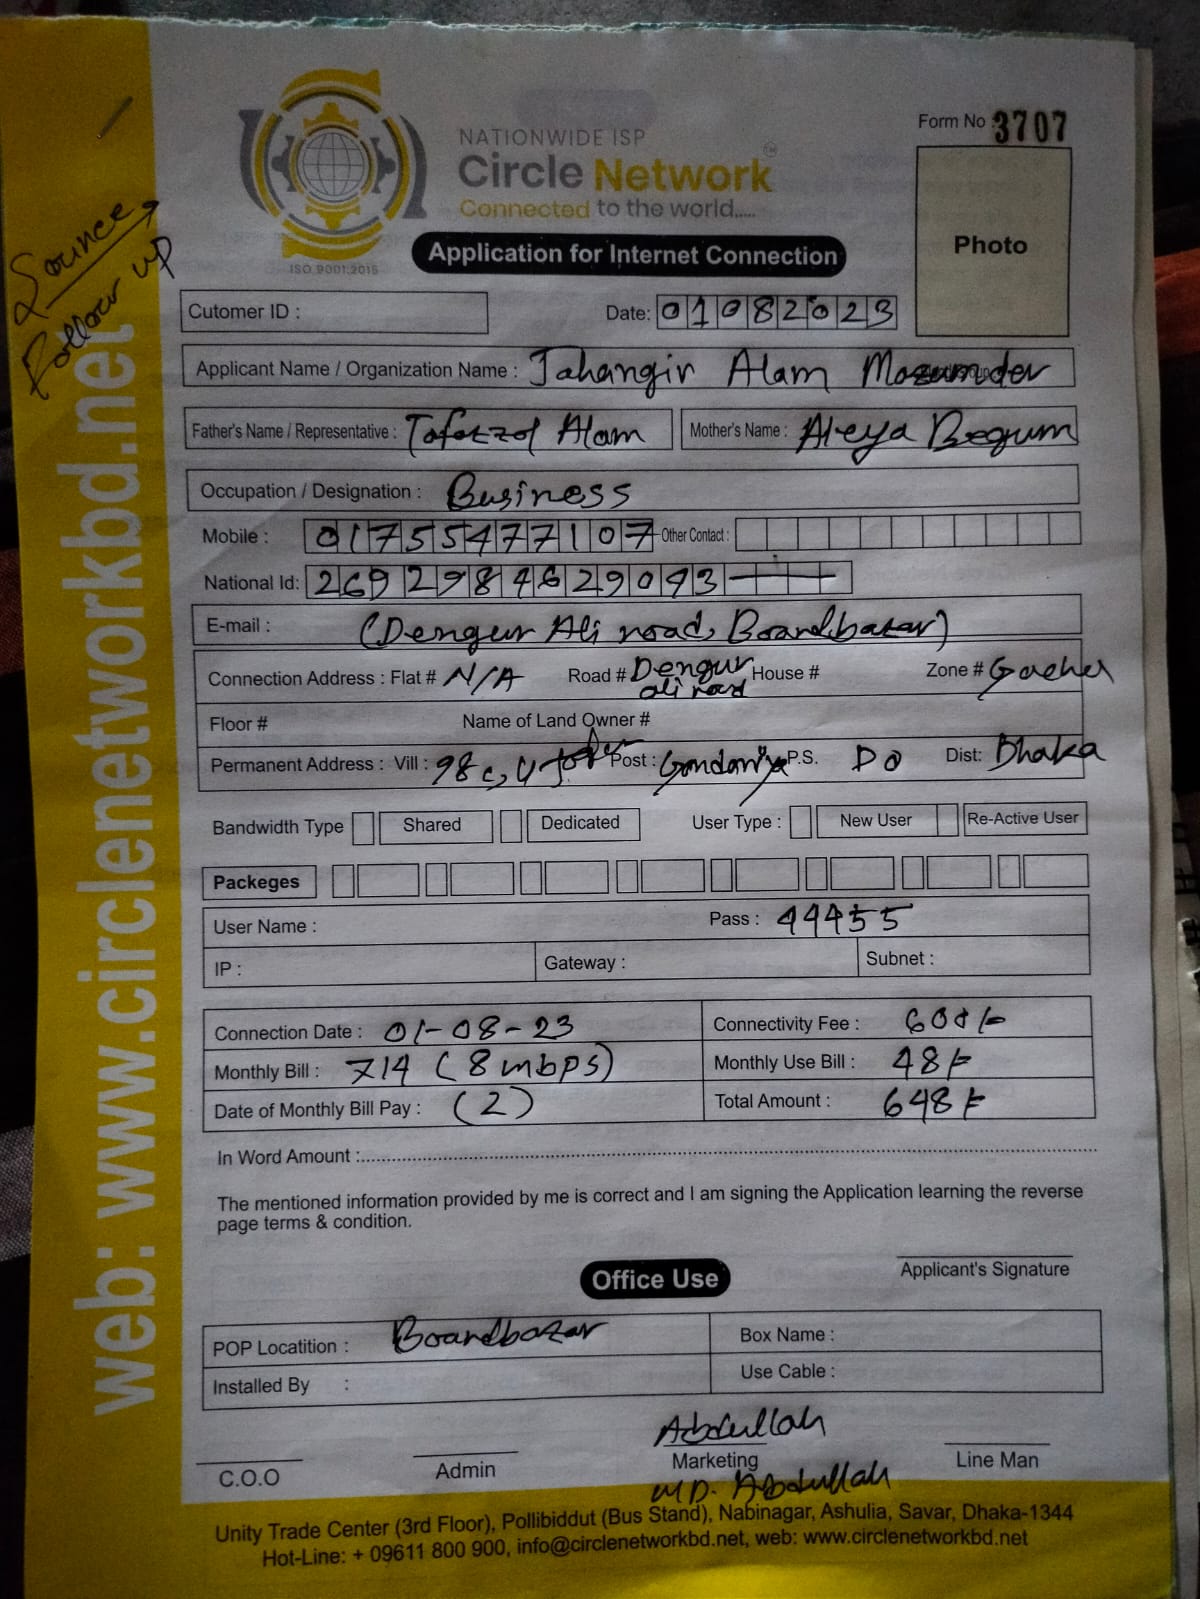 Form No 3707
NATIONWIDE ISP
Circle Network
TM
Connected to the world.....
ISO 9001:2015
Application for Internet Connection
Photo
Source
Follow up
web: www.circlenetworkbd.net
Cutomer ID :
Date: 01082023
Applicant Name / Organization Name : Jahangir Alam Mozumder
Father's Name / Representative : Tofazzol Alam Mother's Name : Aleya Begum
Occupation / Designation : Business
Mobile : 01755477107 Other Contact :
National Id: 2692984629093
E-mail : (Dengur Ali road, Boardbazar)
Connection Address : Flat # N/A Road # Dengur ali road House # Zone #
Floor # Name of Land Owner #
Permanent Address : Vill : 98 c, Post : Gandariya P.S. DO Dist: Dhaka
Bandwidth Type Shared Dedicated User Type : New User Re-Active User
Packeges
User Name : Pass : 44455
IP : Gateway : Subnet :
Connection Date : 01-08-23 Connectivity Fee : 600/-
Monthly Bill : 714 (8 mbps) Monthly Use Bill : 48/-
Date of Monthly Bill Pay : (2) Total Amount : 648/-
In Word Amount :
The mentioned information provided by me is correct and I am signing the Application learning the reverse
page terms & condition.
Applicant's Signature
Office Use
POP Locatition : Boardbazar Box Name :
Installed By : Use Cable :
Abdullah
C.O.O Admin Marketing Line Man
MD. Abdullah
Unity Trade Center (3rd Floor), Pollibiddut (Bus Stand), Nabinagar, Ashulia, Savar, Dhaka-1344
Hot-Line: + 09611 800 900, info@circlenetworkbd.net, web: www.circlenetworkbd.net